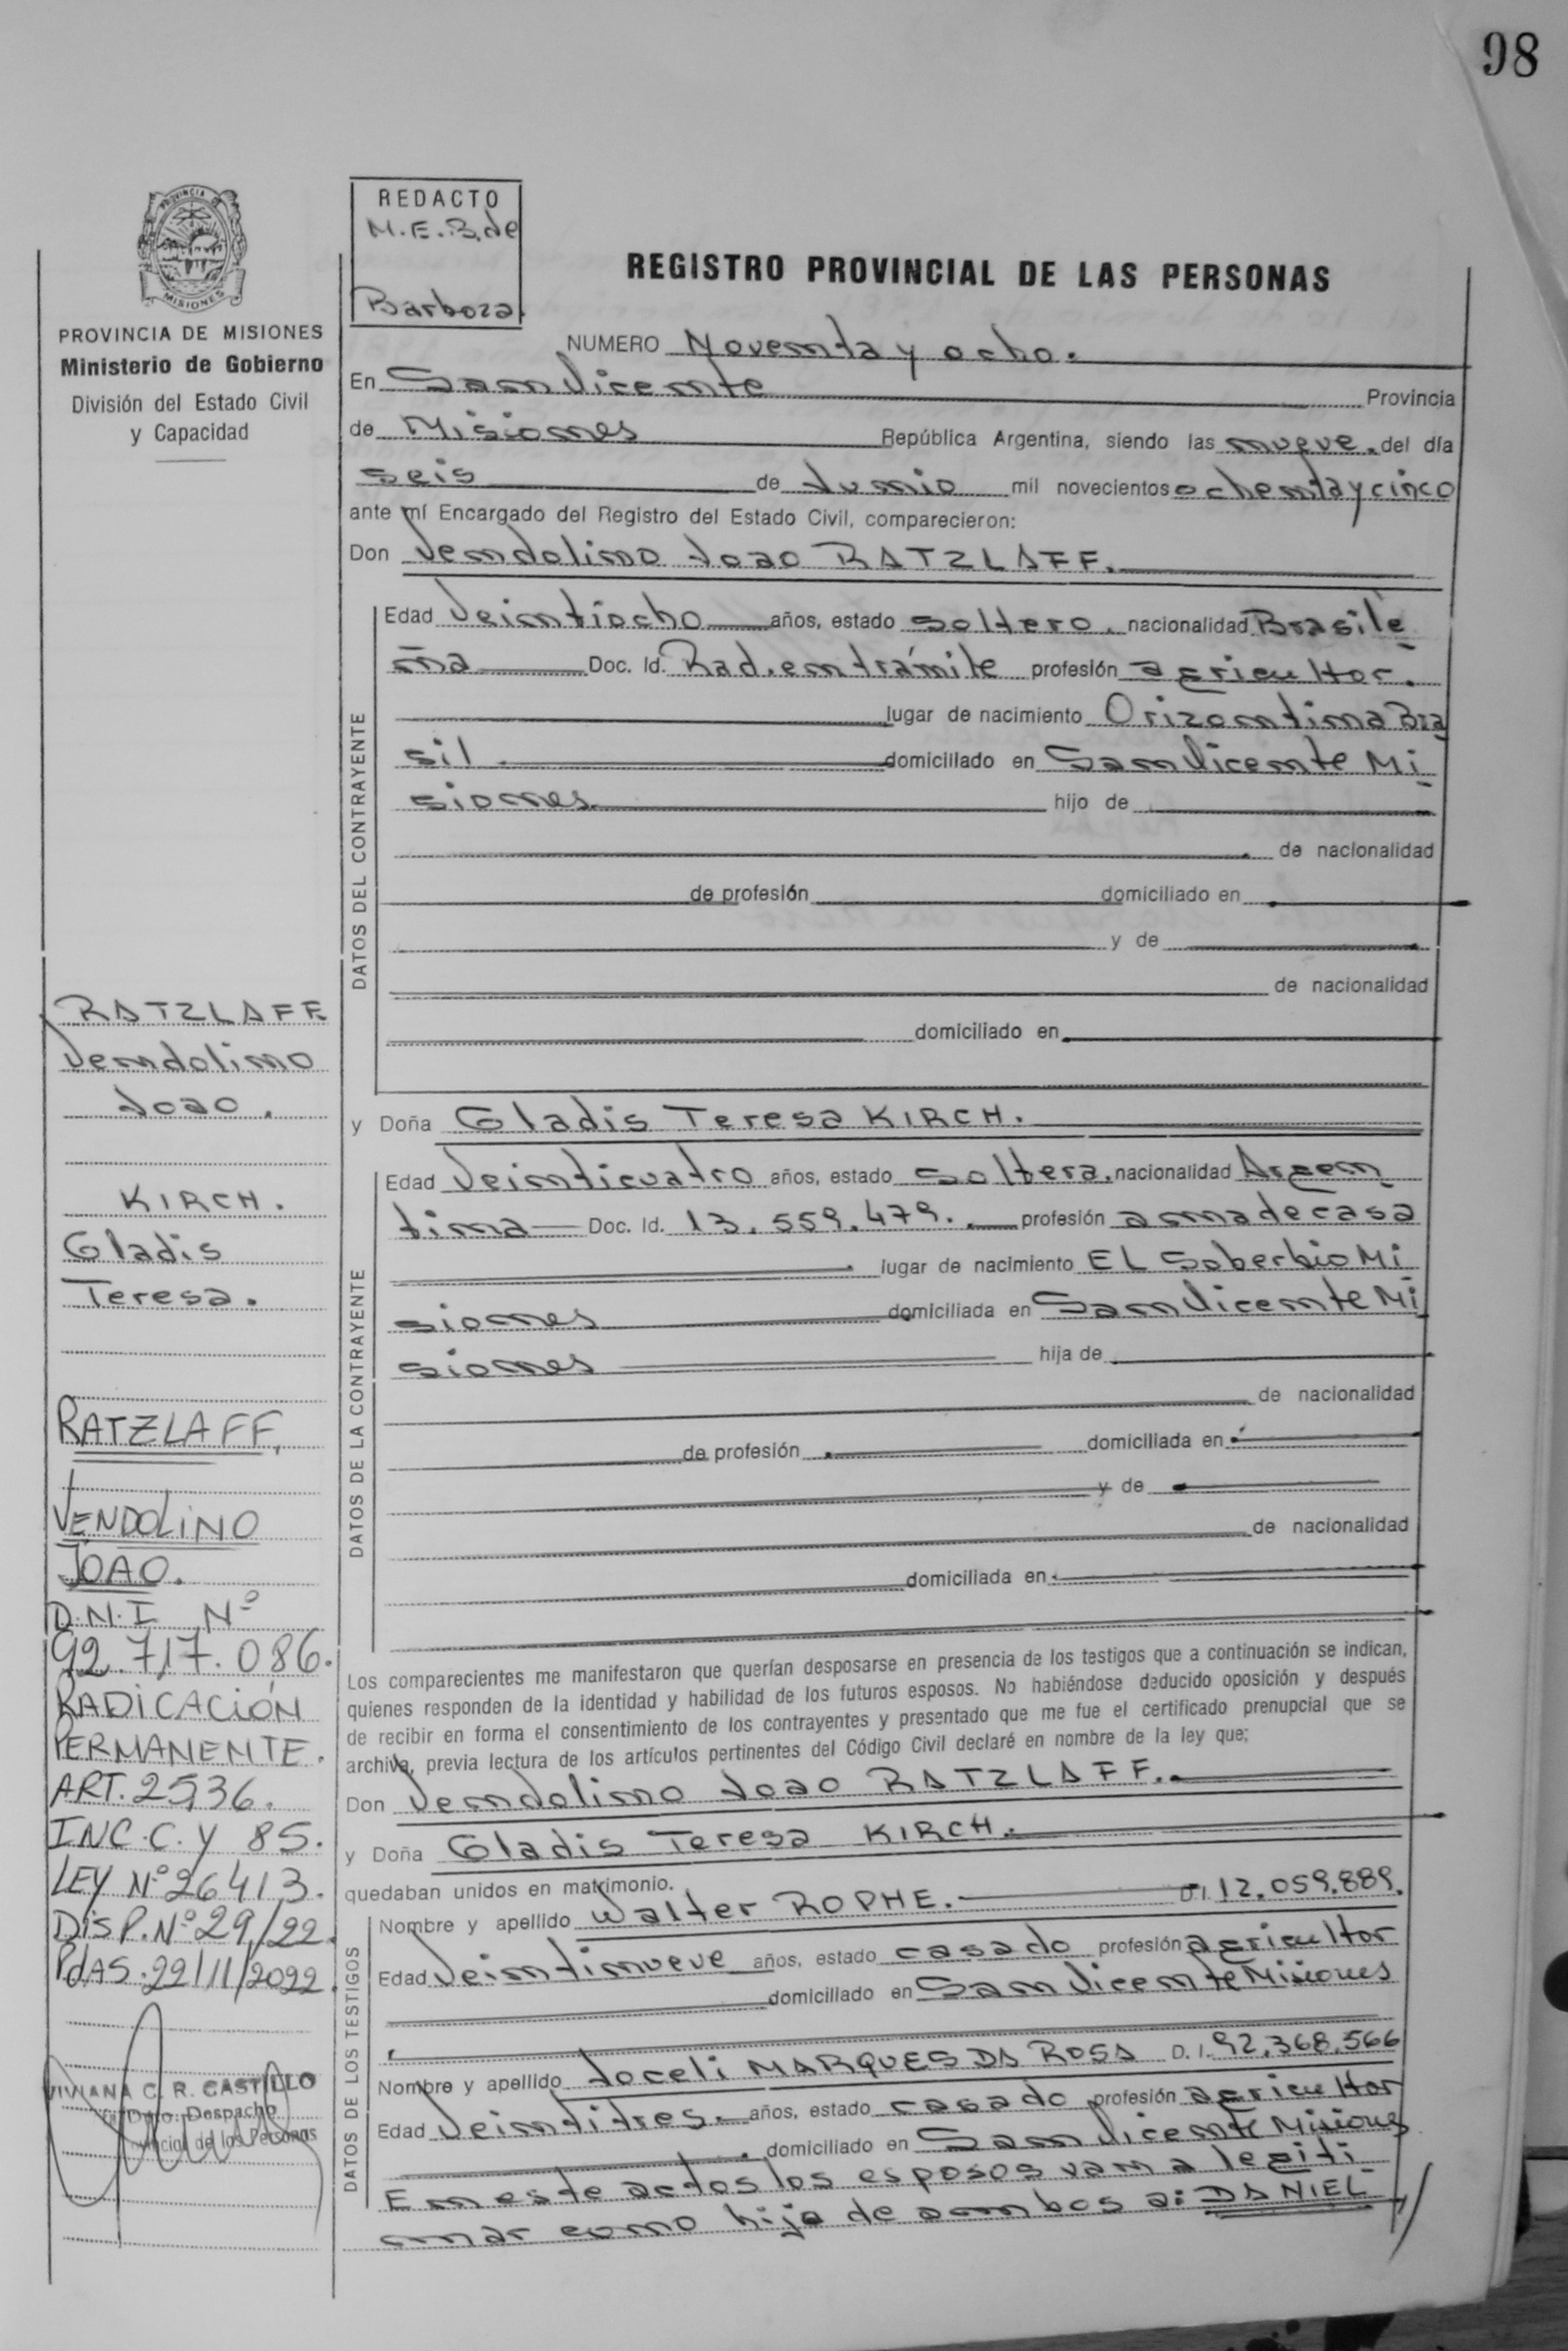 98
PROVINCIA DE
MISIONES
PROVINCIA DE MISIONES
Ministerio de Gobierno
División del Estado Civil
y Capacidad
REDACTO
M.E.B. de
Barboza.
REGISTRO PROVINCIAL DE LAS PERSONAS
NUMERO Noventa y ocho.
En San Vicente Provincia
de Misiones República Argentina, siendo las nueve. del día
seis de Junio mil novecientos ochenta y cinco
ante mí Encargado del Registro del Estado Civil, comparecieron:
Don Vendolino Joao RATZLAFF.
DATOS DEL CONTRAYENTE
Edad Veintiocho años, estado soltero. nacionalidad Brasile
ña Doc. Id. Rad. en trámite profesión agricultor.
lugar de nacimiento Orizontina Bra
sil. domiciliado en San Vicente Mi
siones hijo de
de nacionalidad
de profesión domiciliado en
y de
de nacionalidad
domiciliado en
y Doña Gladis Teresa KIRCH.
DATOS DE LA CONTRAYENTE
Edad Veinticuatro años, estado soltera. nacionalidad Argen
tina Doc. Id. 13.559.479. profesión ama de casa
lugar de nacimiento EL Soberbio Mi
siones domiciliada en San Vicente Mi
siones hija de
de nacionalidad
de profesión domiciliada en
y de
de nacionalidad
domiciliada en
Los comparecientes me manifestaron que querían desposarse en presencia de los testigos que a continuación se indican,
quienes responden de la identidad y habilidad de los futuros esposos. No habiéndose deducido oposición y después
de recibir en forma el consentimiento de los contrayentes y presentado que me fue el certificado prenupcial que se
archiva, previa lectura de los artículos pertinentes del Código Civil declaré en nombre de la ley que;
Don Vendolino Joao RATZLAFF.
y Doña Gladis Teresa KIRCH.
quedaban unidos en matrimonio.
DATOS DE LOS TESTIGOS
Nombre y apellido Walter ROPHE. D.I. 12.059.889.
Edad Veintinueve años, estado casado profesión agricultor
domiciliado en San Vicente Misiones
Nombre y apellido Joceli MARQUES DA ROSA D.I. 92.368.566
Edad Veintitres. años, estado casado profesión agricultor
domiciliado en San Vicente Misiones
En este actos los esposos van a legiti
mar como hijo de ambos a: DANIEL //
RATZLAFF.
Vendolino
Joao.
KIRCH.
Gladis
Teresa.
RATZLAFF,
VENDOLINO
JOAO.
D.N.I Nº
92.717.086.
RADICACIÓN
PERMANENTE.
ART. 25,36.
INC. C. Y 85.
LEY Nº 26413.
DISP. Nº 29/22.
PdAS. 22/11/2022.
VIVIANA C. R. CASTILLO
Dpto. Despacho
de las Personas